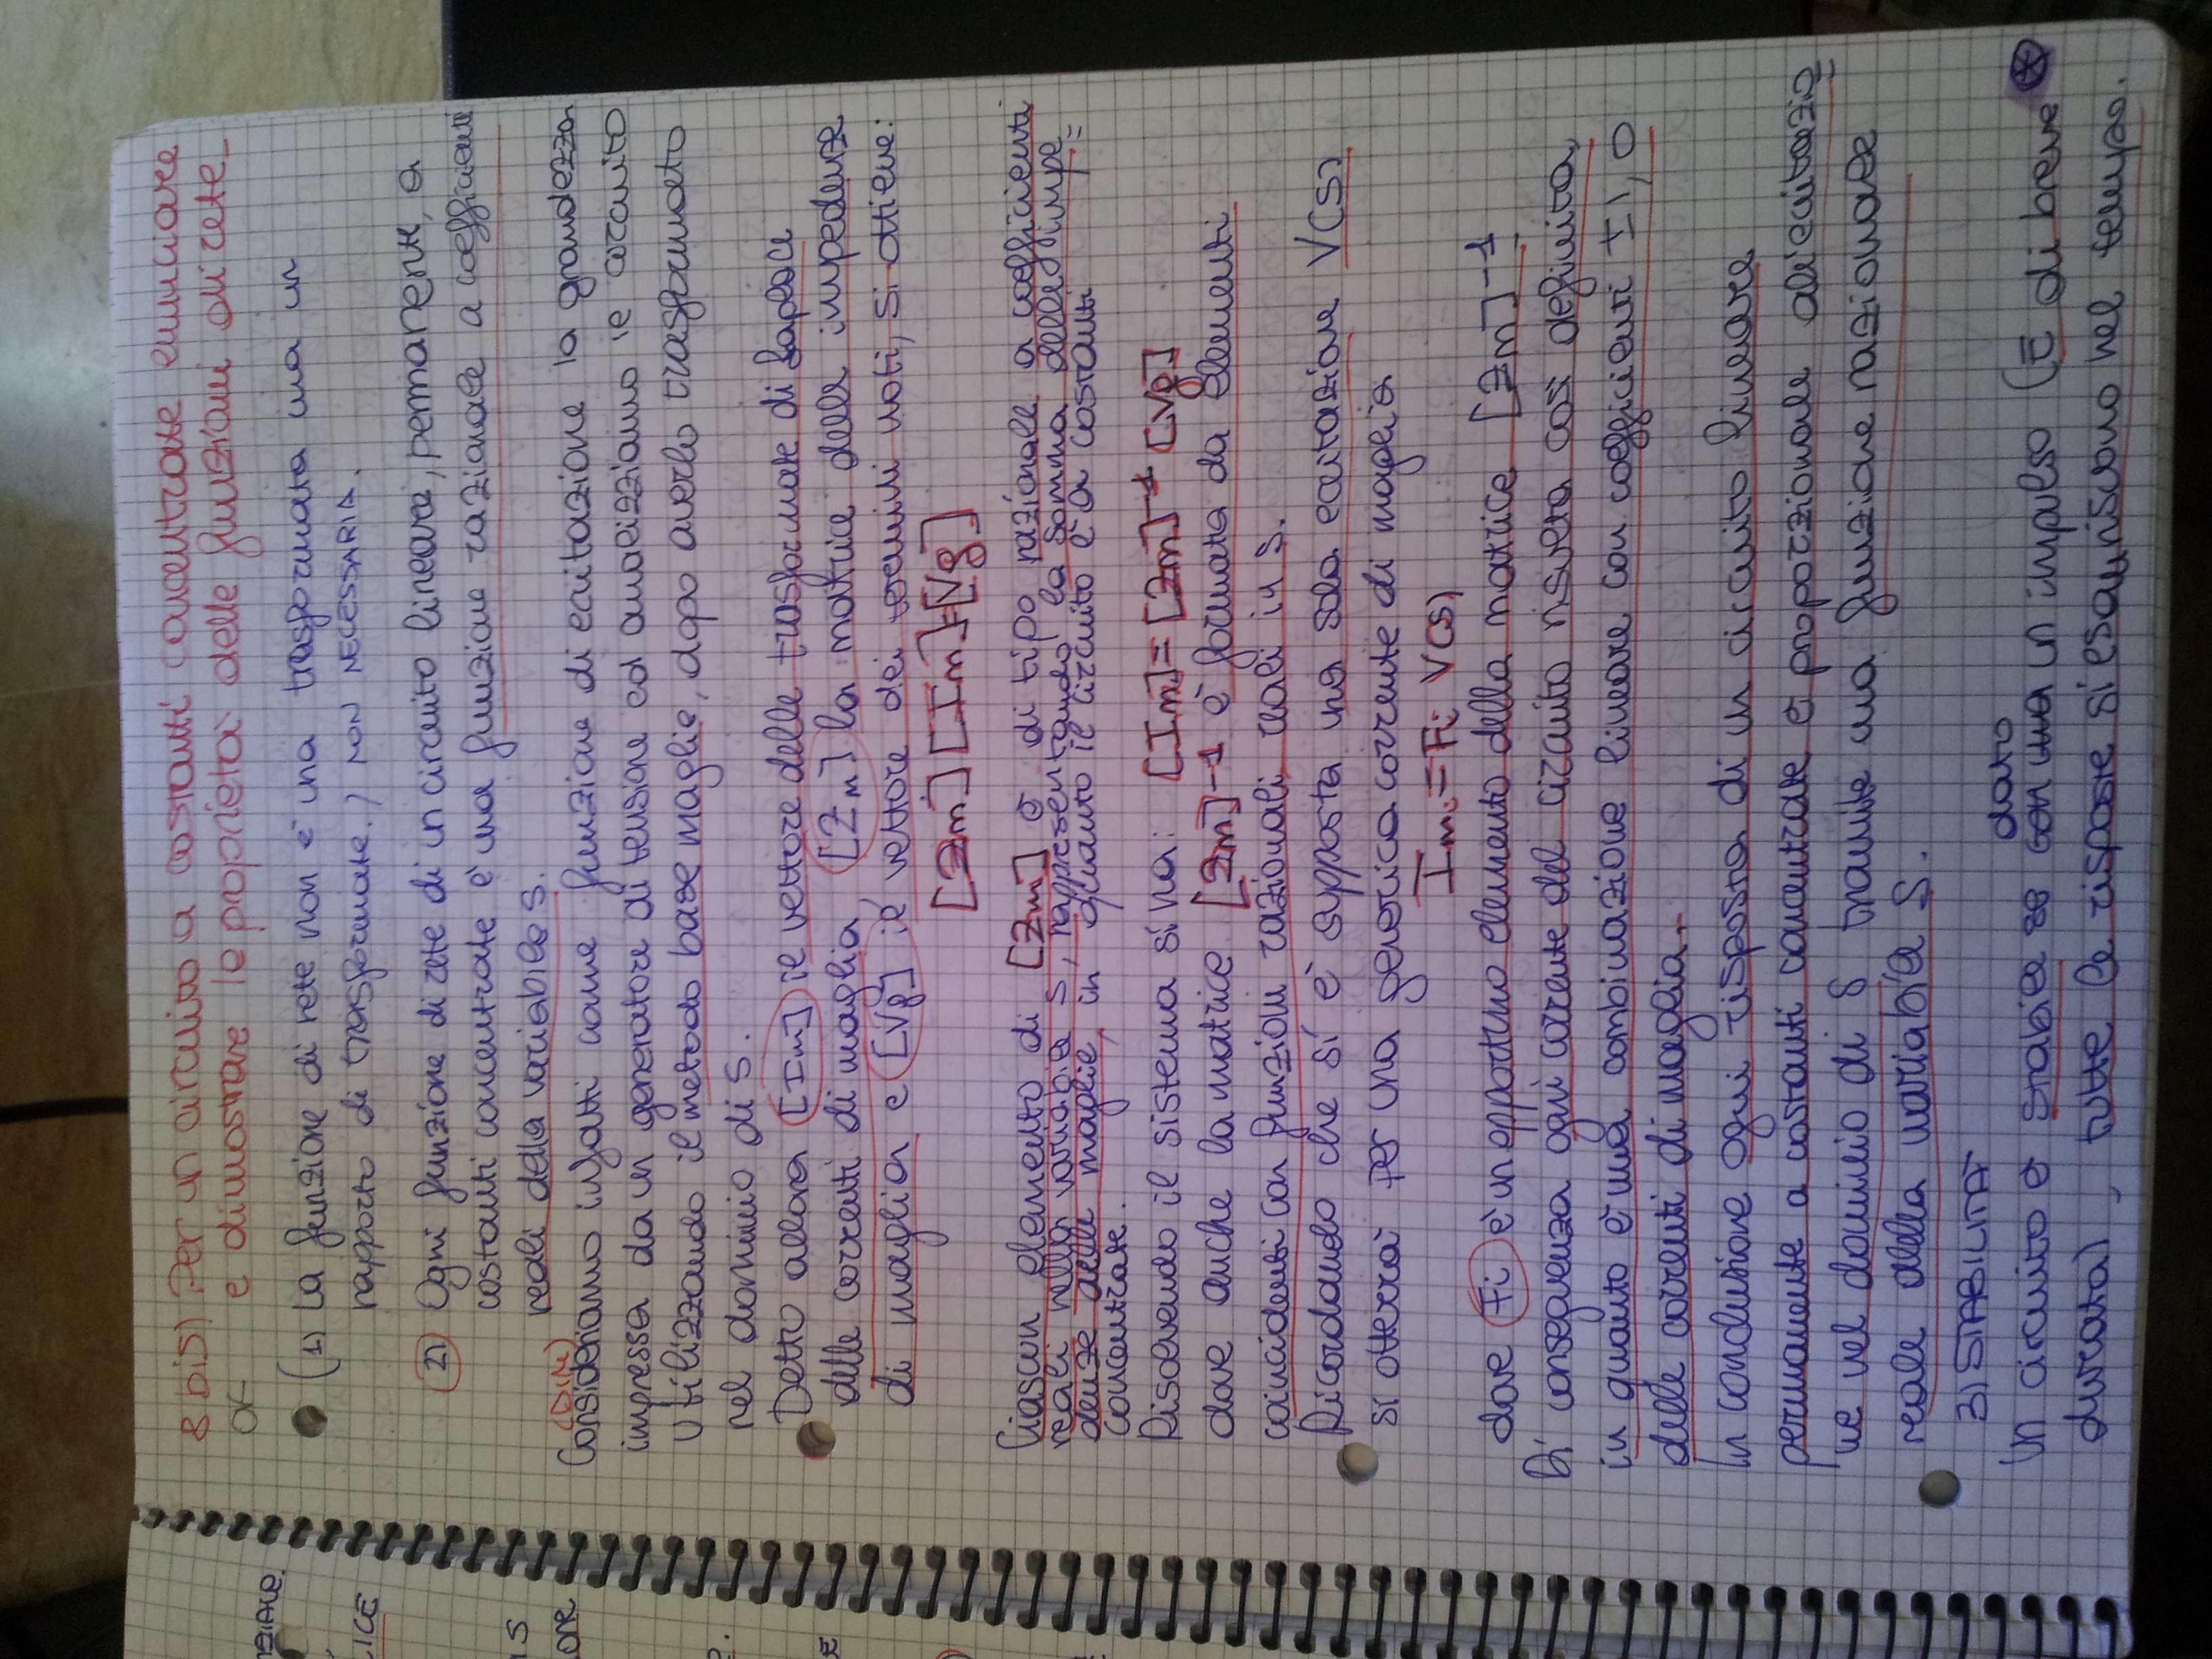 8 bis) Per un circuito a costanti concentrate enunciare
OK e dimostrare le proprietà delle funzioni di rete
(1) La funzione di rete non è una trasformata ma un
rapporto di trasformate.) NON NECESSARIA.
2) Ogni funzione di rete di un circuito lineare, permanente, a
costanti concentrate è una funzione razionale a coefficienti
reali della variabile s.
(Dim)
Consideriamo infatti come funzione di eccitazione la grandezza
impressa da un generatore di tensione ed analizziamo il circuito
utilizzando il metodo base maglie, dopo averlo trasformato
nel dominio di s.
Detto allora [Im] il vettore delle trasformate di Laplace
delle correnti di maglia, [Zm] la matrice delle impedenze
di maglia e [Vg] il vettore dei termini noti, si ottiene:
[Zm] [Im]=[Vg]
Ciascun elemento di [Zm] è di tipo razionale a coefficienti
reali nella variabile s, rappresentando la somma delle impe=
denze delle maglie, in quanto il circuito è a costanti
concentrate.
Risolvendo il sistema si ha: [Im]=[Zm]⁻¹ [Vg]
dove anche la matrice [Zm]⁻¹ è formata da elementi
coincidenti con funzioni razionali reali in s.
Ricordando che si è supposta una sola eccitazione V(s)
si otterrà per una generica corrente di maglia
Imi = Fi V(s)
dove Fi è un opportuno elemento della matrice [Zm]⁻¹
Di conseguenza ogni corrente del circuito risulta così definita,
in quanto è una combinazione lineare con coefficienti ±1, 0
delle correnti di maglia.
In conclusione ogni risposta di un circuito lineare
permanente a costanti concentrate è proporzionale all'eccitazio=
ne nel dominio di s tramite una funzione razionale
reale della variabile s.
3) STABILITÀ
dato
Un circuito è stabile se un impulso (E di breve
durata), tutte le risposte si esauriscono nel tempo.
NZIALE.
LICE
one